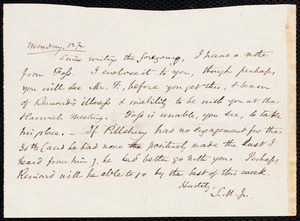 Monday, 12th
Since writing the foregoing, I have a note
from Foss. I enclose it to you, though perhaps
you will see Mr. F. before you get this, & learn
of Remond's illness & inability to be with you at the
Harwich meeting. Foss is unable, you see, to take
his place. — If Pillsbury has no engagement for that
30th (and he had none positively made the last I
heard from him), he had better go with you. Perhaps
Remond will be able to go by the last of this week.
Hastily,
S. M. Jr.